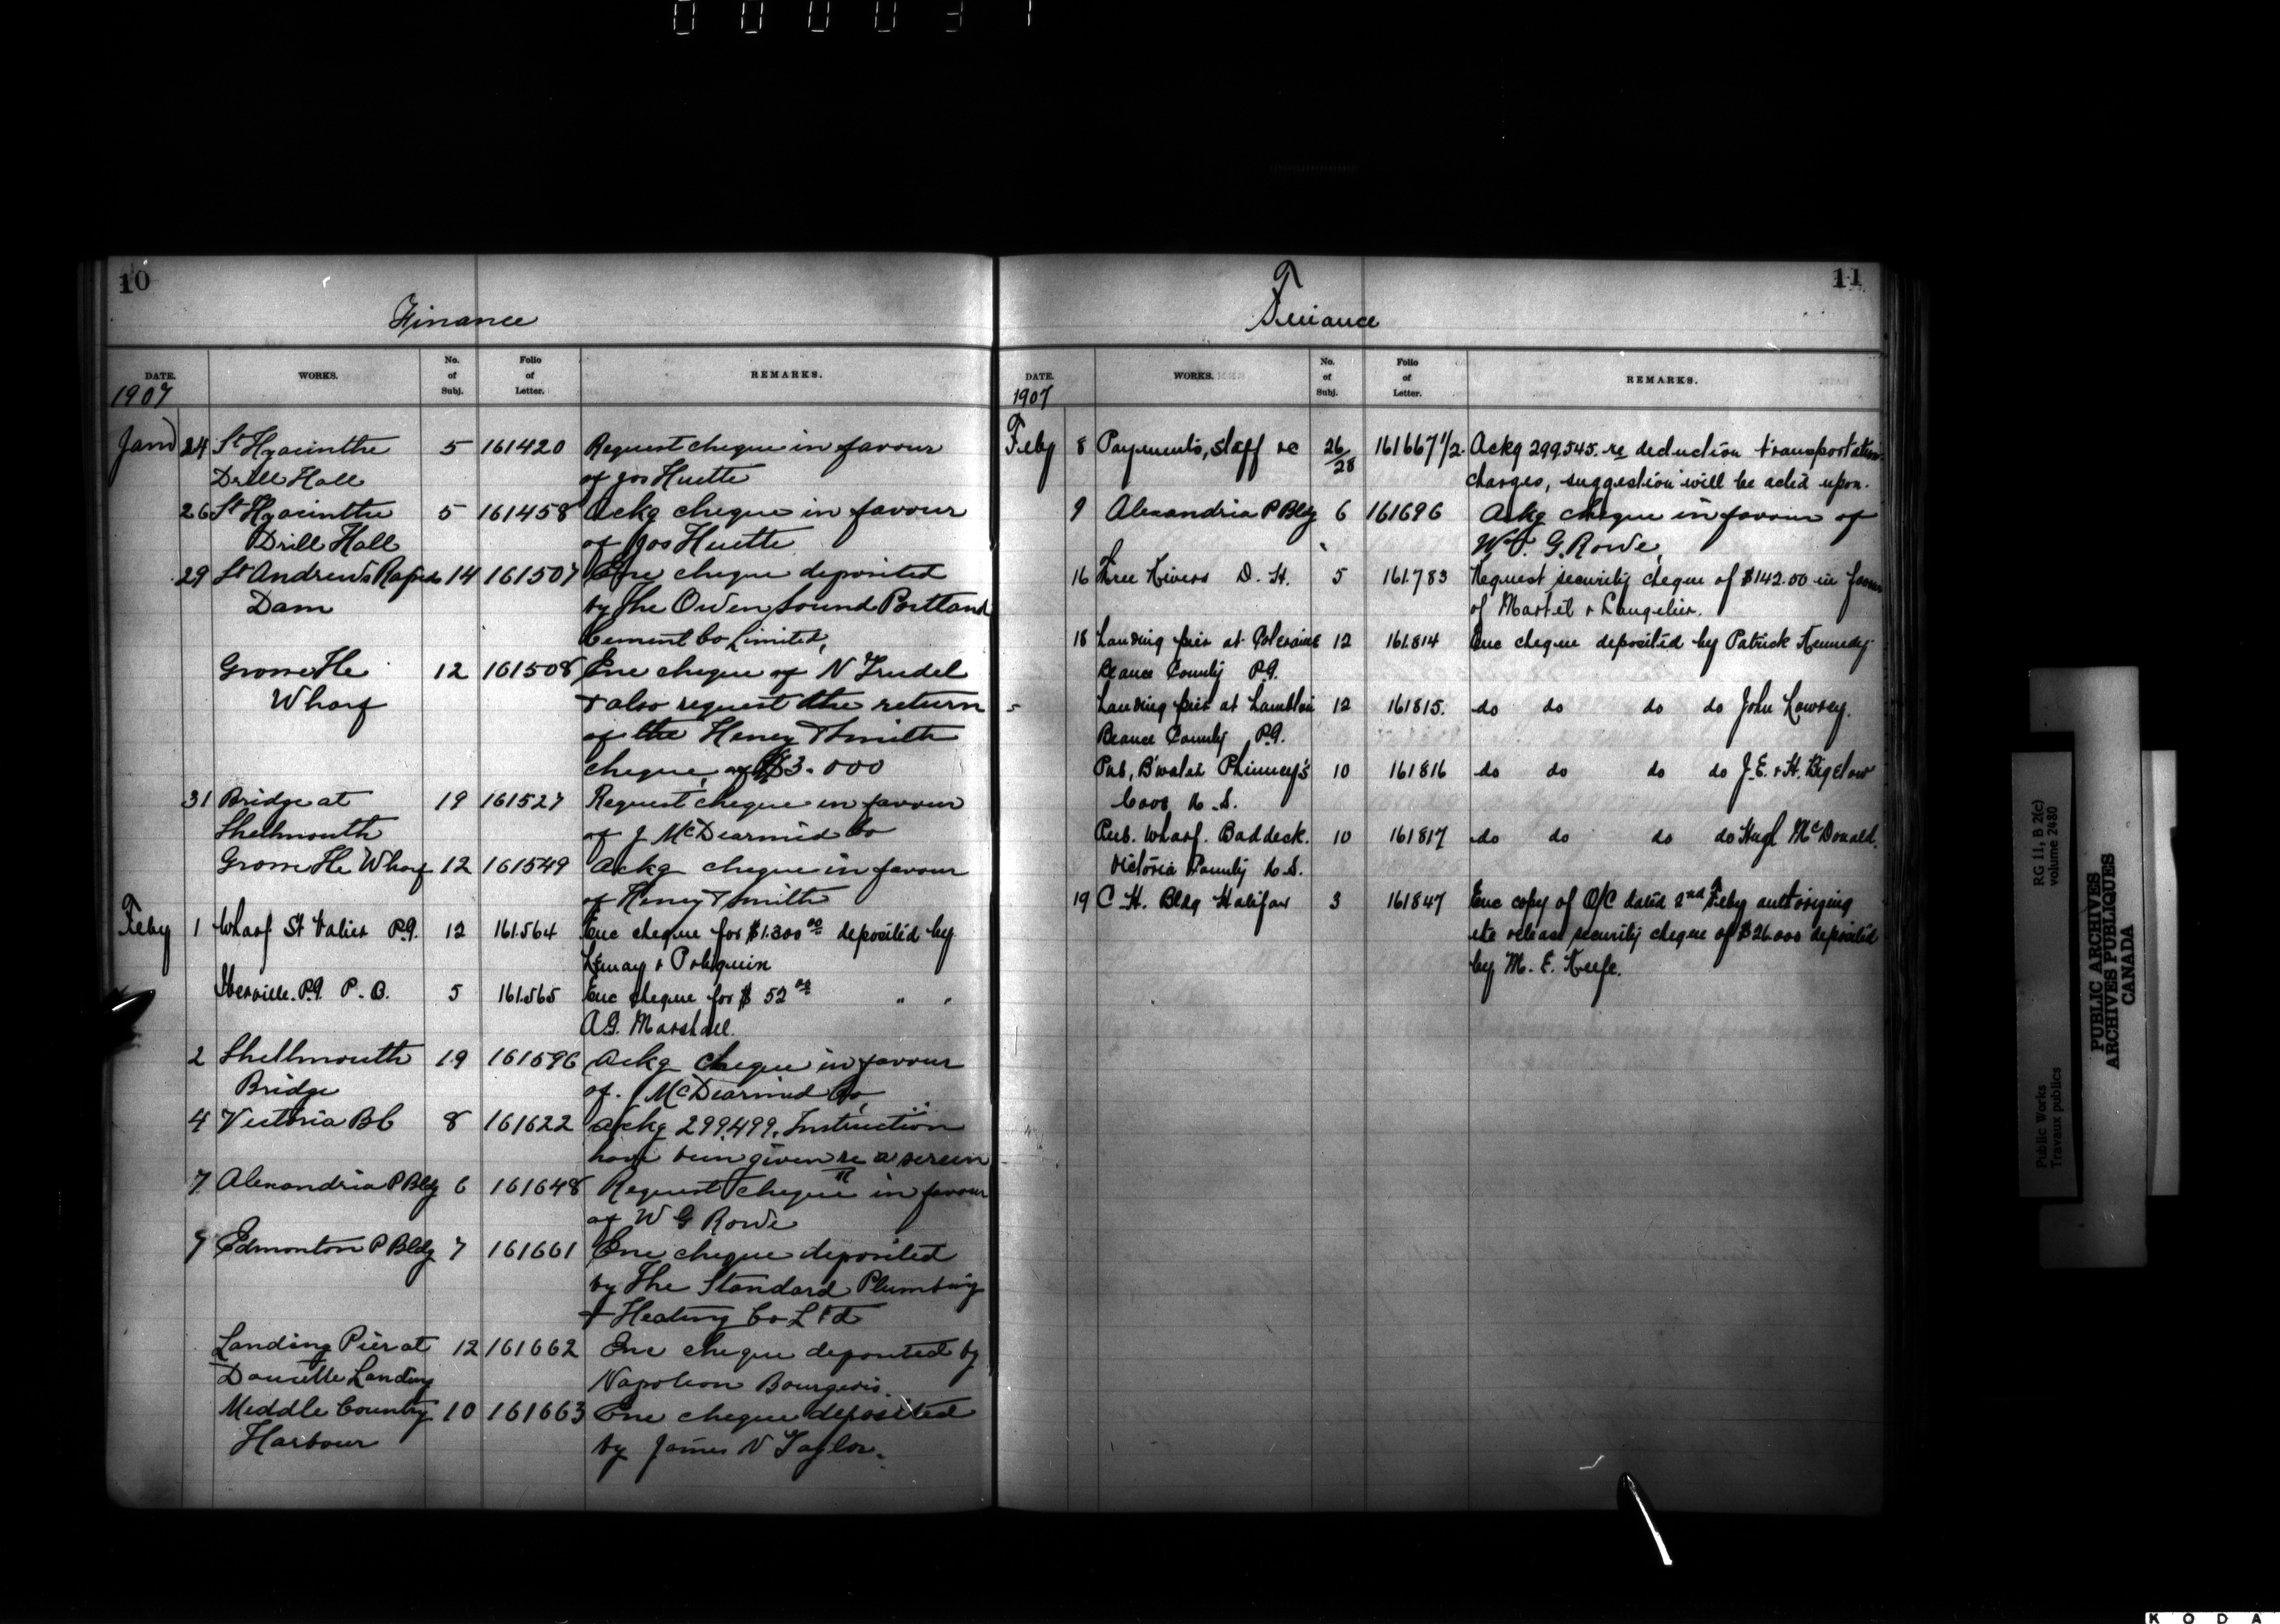 0 0 0 0 3 1
10
Finance
DATE. WORKS. No. of Subj. Folio of Letter. REMARKS.
1907
Jany 24 St Hyacinthe 5 161420 Request cheque in favour
Drill Hall of Jos Huette
26 St Hyacinthe 5 161458 Ackg cheque in favour
Drill Hall of Jos Huette
29 St Andrews Rapids 14 161507 Enc cheque deposited
Dam by The Owen Sound Portland
Cement Co Limited,
Grosse Ile 12 161508 Enc cheque of N Trudel
Wharf & also request the return
of the Henry T Smith
cheque, of $3.000
31 Bridge at 19 161527 Request cheque in favour
Shellmouth of J McDearmid Co
Grosse Ile Wharf 12 161549 Ackg cheque in favour
of Henry T Smith
Feby 1 Wharf St Valier P.Q. 12 161.564 Enc cheque for $1.300 00 deposited by
Lemay & Poliquin
Iberville P.Q. P. O. 5 161.565 Enc cheque for $ 52 00 " "
A.G. Marshall.
2 Shellmouth 19 161596 Ackg cheque in favour
Bridge of J McDearmid Co
4 Victoria BC 8 161622 Ackg 299.499. Instruction
have been given re a screen
7 Alexandria P Bldg 6 161648 Request cheque in favour
of W G Rowe
7 Edmonton P Bldg 7 161661 Enc cheque deposited
by The Standard Plumbing
& Heating Co Ltd
Landing Pier at 12 161662 Enc cheque deposited by
Doucette Landing Napoleon Bourgeois.
Middle Country 10 161663 Enc cheque deposited
Harbour by James N Taylor.
11
Finance
DATE. WORKS. No. of Subj. Folio of Letter. REMARKS.
1907
Feby 8 Payments, staff re 26/28 161667 1/2. Ackg 299.545. re deduction transportation
charges, suggestion will be acted upon.
9 Alexandria P Bldg 6 161696 Ackg cheque in favour of
W. G. Rowe,
16 Three Rivers D. H. 5 161.783 Request security cheque of $142.50 in favour
of Martel & Langelier.
18 Landing pier at 12 161.814 Enc cheque deposited by Patrick Kennedy
Beauce County P.Q.
Landing pier at Lambton 12 161815. do do do do John Lowrey.
Beauce County P.Q.
Pub, B'water Phinney's 10 161816 do do do do J.E. & H. Bigelow
Cove N.S.
Pub. Wharf. Baddeck. 10 161817 do do do do Hugh McDonald.
Victoria County N.S.
19 C H. Bldg Halifax 3 161847 Enc copy of O/C dated 2nd Feby authorizing
the release security cheque of $26.000 deposited
by M. E. Keefe.
RG 11, B 2(c)
volume 2480
Public Works
Travaux publics
PUBLIC ARCHIVES
ARCHIVES PUBLIQUES
CANADA
K O D A